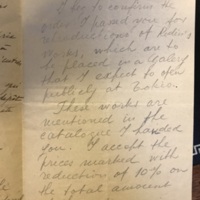 I beg to confirm the
order I passed you for
reproductions of Rodin's
works, which are to
be placed in a Gallery
that I expect to open
publicly at Tokio.
These works are
mentioned in the
catalogue I handed
you. I accept the
prices marked with
reduction of 10% on
the total amount